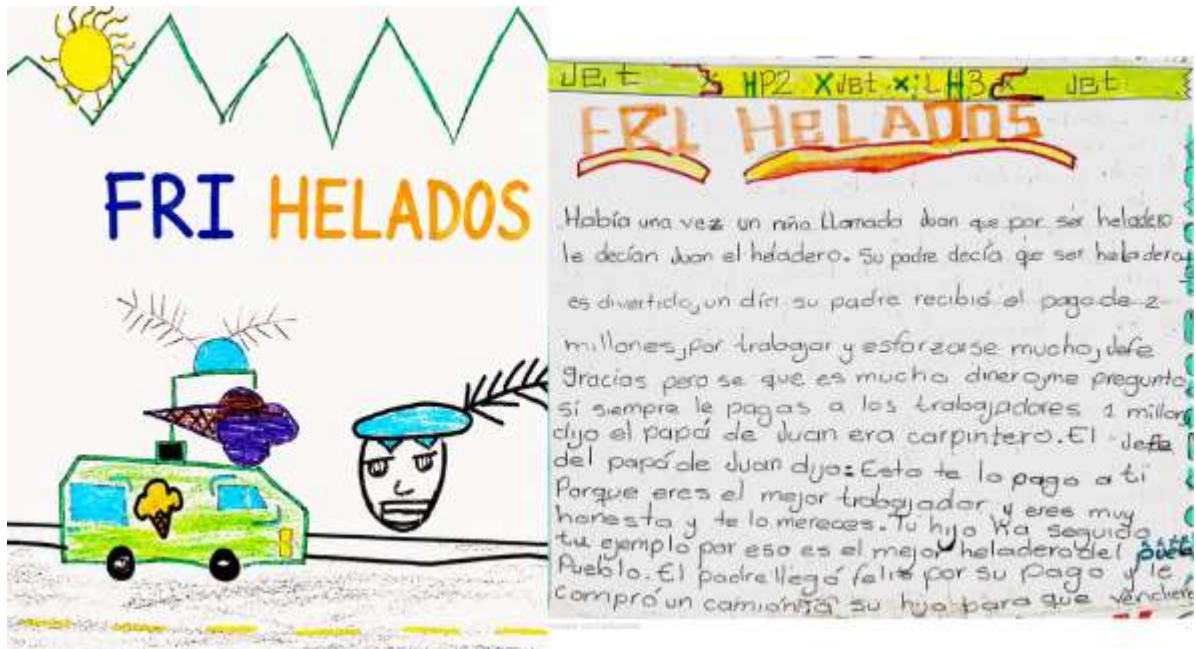 FRI HELADOS
JET HP2 XJBt x;L H3 JBt
FRI HELADOS
Había una vez un niño Llamado Juan que por ser heladero
le decían Juan el heladero. Su padre decía qe ser heladero
es divertido, un día su padre recibió el pago de 2
millones, por trabajar y esforzarse mucho, Jefe
Gracias pero se que es mucho dinero y me pregunto
si siempre le pagas a los trabajadores 1 millon
dijo el papá de Juan era carpintero. El Jefe
del papá de Juan dijo: Esto te lo pago a ti
Porque eres el mejor trabajador y eres muy
honesto y te lo mereces. Tu hijo ha seguido
tu ejemplo por eso es el mejor heladero del
Pueblo. El padre llegó feliz por su Pago y le
compró un camión a su hijo para que vendiera